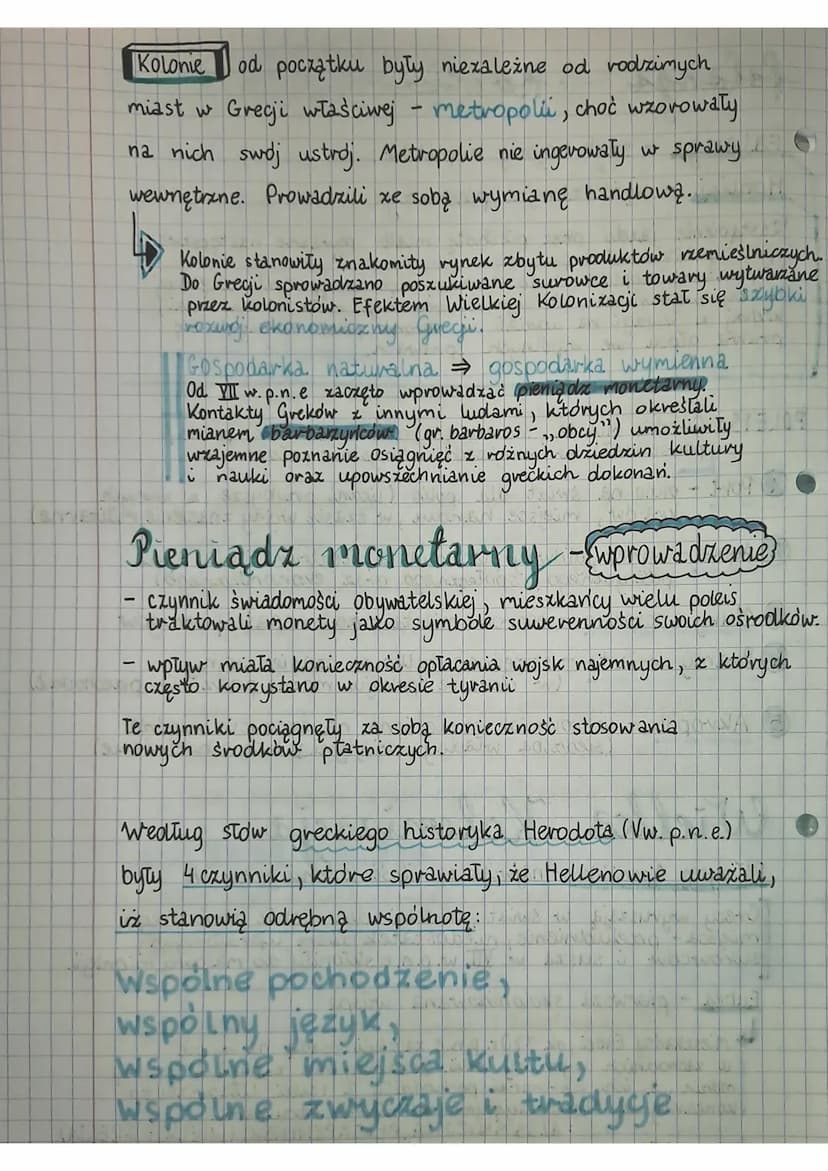 Kolonie od początku były niezależne od rodzimych
miast w Grecji właściwej - metropolii, choć wzorowały
na nich swój ustrój. Metropolie nie ingerowały w sprawy
wewnętrzne. Prowadzili ze sobą wymianę handlową.
Kolonie stanowiły znakomity rynek zbytu produktów rzemieślniczych.
Do Grecji sprowadzano poszukiwane surowce i towary wytwarzane
przez kolonistów. Efektem Wielkiej Kolonizacji stał się szybki
rozwój ekonomiczny Grecji.
Gospodarka naturalna ⇒ gospodarka wymienna
Od VII w.p.n.e zaczęto wprowadzać pieniądz monetarny.
Kontakty Greków z innymi ludami, których określali
mianem barbarzyńców (gr. barbaros - „obcy") umożliwiły
wzajemne poznanie osiągnięć z różnych dziedzin kultury
i nauki oraz upowszechnianie greckich dokonań.
Pieniądz monetarny - wprowadzenie
- czynnik świadomości obywatelskiej, mieszkańcy wielu poleis
traktowali monety jako symbole suwerenności swoich ośrodków.
- wpływ miała konieczność opłacania wojsk najemnych, z których
często korzystano w okresie tyranii
Te czynniki pociągnęły za sobą konieczność stosowania
nowych środków płatniczych.
Według słów greckiego historyka Herodota (Vw. p.n.e.)
były 4 czynniki, które sprawiały, że Hellenowie uważali,
iż stanowią odrębną wspólnotę:
Wspólne pochodzenie,
wspólny język,
wspólne miejsca kultu,
wspólne zwyczaje i tradycje